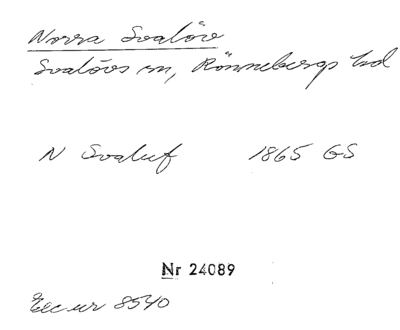 Norra Svalöv
Svalövs sn, Rönnebergs hd
N Svaluf 1865 GS
Nr 24089
Exc nr 8540